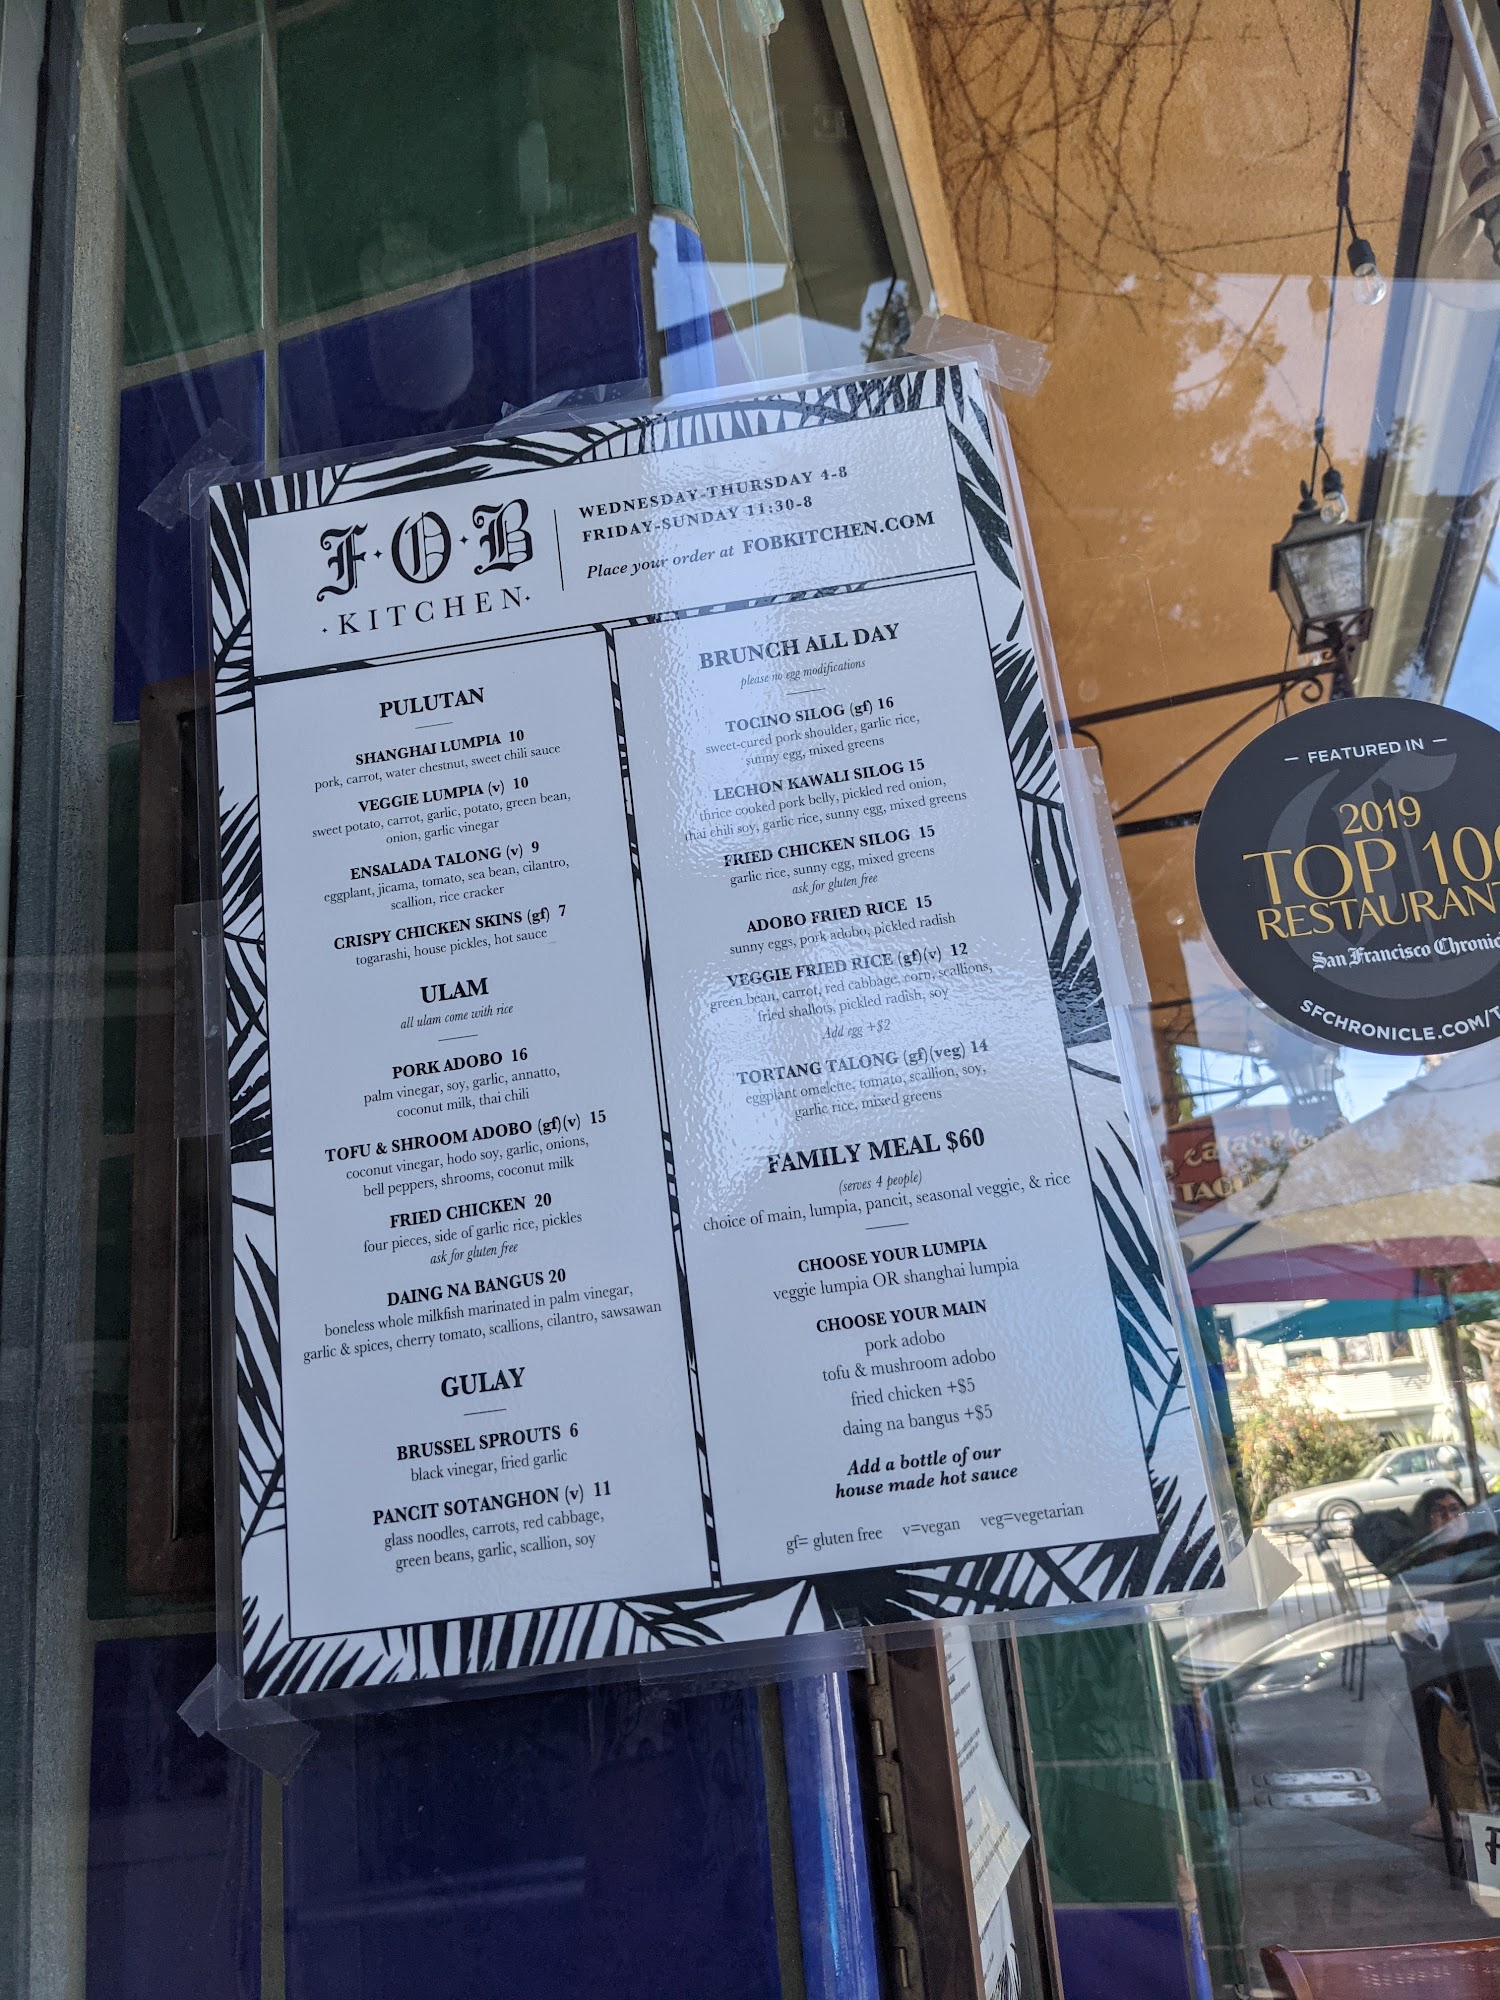 F·O·B
·KITCHEN·
WEDNESDAY-THURSDAY 4-8
FRIDAY-SUNDAY 11:30-8
Place your order at FOBKITCHEN.COM
PULUTAN
SHANGHAI LUMPIA 10
pork, carrot, water chestnut, sweet chili sauce
VEGGIE LUMPIA (v) 10
sweet potato, carrot, garlic, potato, green bean,
onion, garlic vinegar
ENSALADA TALONG (v) 9
eggplant, jicama, tomato, sea bean, cilantro,
scallion, rice cracker
CRISPY CHICKEN SKINS (gf) 7
togarashi, house pickles, hot sauce
ULAM
all ulam come with rice
PORK ADOBO 16
palm vinegar, soy, garlic, annatto,
coconut milk, thai chili
TOFU & SHROOM ADOBO (gf)(v) 15
coconut vinegar, hodo soy, garlic, onions,
bell peppers, shrooms, coconut milk
FRIED CHICKEN 20
four pieces, side of garlic rice, pickles
ask for gluten free
DAING NA BANGUS 20
boneless whole milkfish marinated in palm vinegar,
garlic & spices, cherry tomato, scallions, cilantro, sawsawan
GULAY
BRUSSEL SPROUTS 6
black vinegar, fried garlic
PANCIT SOTANGHON (v) 11
glass noodles, carrots, red cabbage,
green beans, garlic, scallion, soy
BRUNCH ALL DAY
please no egg modifications
TOCINO SILOG (gf) 16
sweet-cured pork shoulder, garlic rice,
sunny egg, mixed greens
LECHON KAWALI SILOG 15
thrice cooked pork belly, pickled red onion,
thai chili soy, garlic rice, sunny egg, mixed greens
FRIED CHICKEN SILOG 15
garlic rice, sunny egg, mixed greens
ask for gluten free
ADOBO FRIED RICE 15
sunny eggs, pork adobo, pickled radish
VEGGIE FRIED RICE (gf)(v) 12
green bean, carrot, red cabbage, corn, scallions,
fried shallots, pickled radish, soy
Add egg +$2
TORTANG TALONG (gf)(veg) 14
eggplant omelette, tomato, scallion, soy,
garlic rice, mixed greens
FAMILY MEAL $60
(serves 4 people)
choice of main, lumpia, pancit, seasonal veggie, & rice
CHOOSE YOUR LUMPIA
veggie lumpia OR shanghai lumpia
CHOOSE YOUR MAIN
pork adobo
tofu & mushroom adobo
fried chicken +$5
daing na bangus +$5
Add a bottle of our
house made hot sauce
gf= gluten free v=vegan veg=vegetarian
— FEATURED IN —
2019
TOP 100
RESTAURANT
San Francisco Chronic
SFCHRONICLE.COM/T